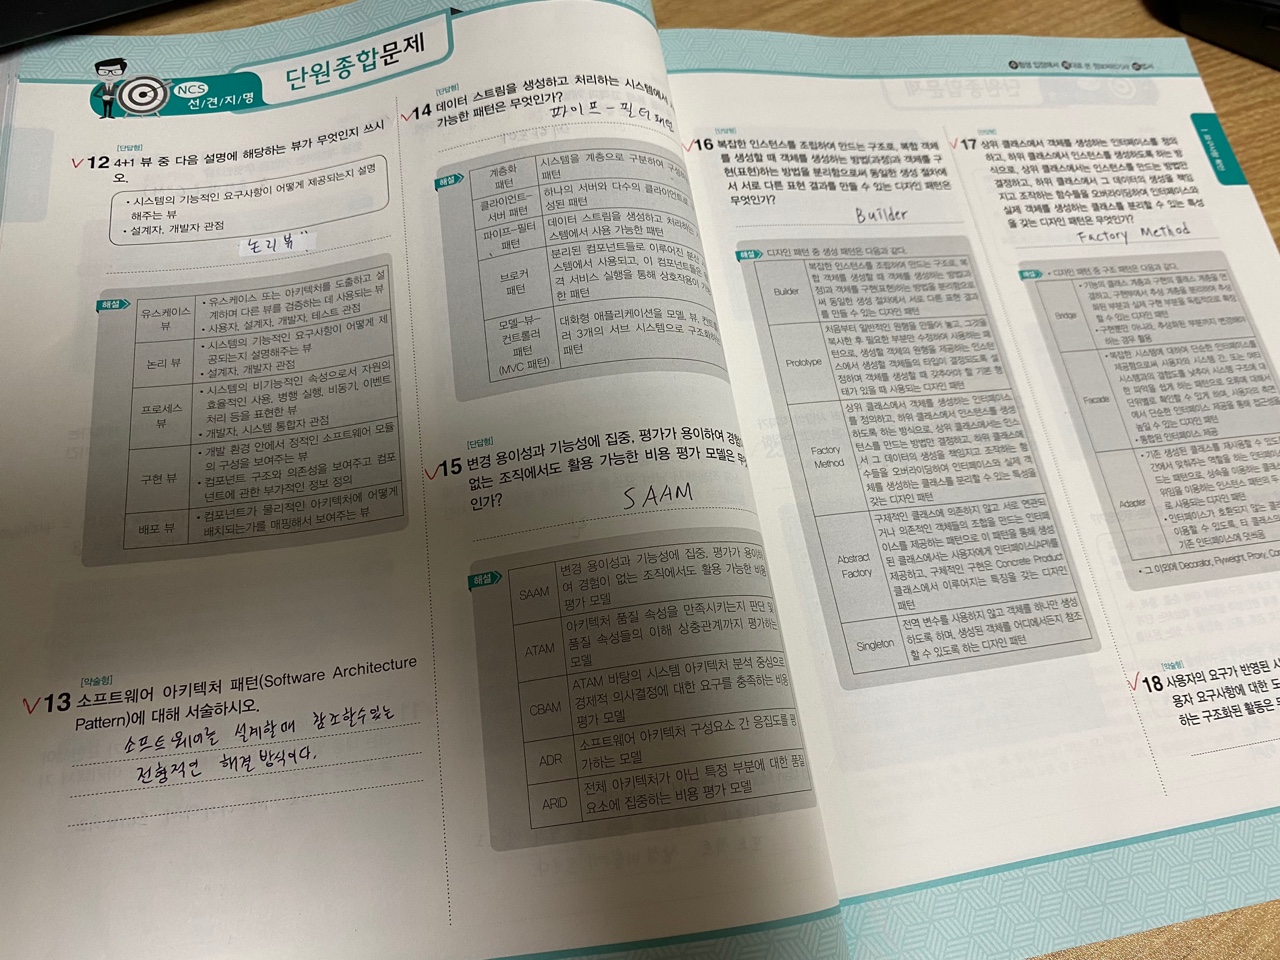 NCS
선/견/지/명
단원종합문제
[단답형]
12 4+1 뷰 중 다음 설명에 해당하는 뷰가 무엇인지 쓰시
오.
• 시스템의 기능적인 요구사항이 어떻게 제공되는지 설명
해주는 뷰
• 설계자, 개발자 관점
논리 뷰
해설
유스케이스 뷰
• 유스케이스 또는 아키텍처를 도출하고 설
계하며 다른 뷰를 검증하는 데 사용되는 뷰
• 사용자, 설계자, 개발자, 테스트 관점
논리 뷰
• 시스템의 기능적인 요구사항이 어떻게 제
공되는지 설명해주는 뷰
• 설계자, 개발자 관점
프로세스 뷰
• 시스템의 비기능적인 속성으로서 자원의
효율적인 사용, 병행 실행, 비동기, 이벤트
처리 등을 표현한 뷰
• 개발자, 시스템 통합자 관점
구현 뷰
• 개발 환경 안에서 정적인 소프트웨어 모듈
의 구성을 보여주는 뷰
• 컴포넌트 구조와 의존성을 보여주고 컴포
넌트에 관한 부가적인 정보 정의
배포 뷰
• 컴포넌트가 물리적인 아키텍처에 어떻게
배치되는가를 매핑해서 보여주는 뷰
[약술형]
13 소프트웨어 아키텍처 패턴(Software Architecture
Pattern)에 대해 서술하시오.
소프트웨어를 설계할때 참조할수있는
전형적인 해결방식이다.
[단답형]
14 데이터 스트림을 생성하고 처리하는 시스템에서
가능한 패턴은 무엇인가?
파이프-필터 패턴
해설
계층화 패턴
시스템을 계층으로 구분하여
패턴
클라이언트-
서버 패턴
하나의 서버와 다수의 클라이언트
성된 패턴
파이프-필터
패턴
데이터 스트림을 생성하고 처리하는
스템에서 사용 가능한 패턴
브로커
패턴
분리된 컴포넌트들로 이루어진 분산
스템에서 사용되고, 이 컴포넌트들은
격 서비스 실행을 통해 상호작용이
한 패턴
모델-뷰-
컨트롤러
패턴
(MVC 패턴)
대화형 애플리케이션을 모델, 뷰,
러 3개의 서브 시스템으로 구조화하는
패턴
[단답형]
15 변경 용이성과 기능성에 집중, 평가가 용이하여 경험이
없는 조직에서도 활용 가능한 비용 평가 모델은
인가?
SAAM
해설
SAAM
변경 용이성과 기능성에 집중, 평가가 용이하
여 경험이 없는 조직에서도 활용 가능한 비용
평가 모델
ATAM
아키텍처 품질 속성을 만족시키는지 판단 및
품질 속성들의 이해 상충관계까지 평가하는
모델
CBAM
ATAM 바탕의 시스템 아키텍처 분석 중심으로
경제적 의사결정에 대한 요구를 충족하는 비용
평가 모델
ADR
소프트웨어 아키텍처 구성요소 간 응집도를 평
가하는 모델
ARID
전체 아키텍처가 아닌 특정 부분에 대한 품질
요소에 집중하는 비용 평가 모델
[단답형]
16 복잡한 인스턴스를 조립하여 만드는 구조로, 복합 객체
를 생성할 때 객체를 생성하는 방법(과정)과 객체를 구
현(표현)하는 방법을 분리함으로써 동일한 생성 절차에
서 서로 다른 표현 결과를 만들 수 있는 디자인 패턴은
무엇인가?
Builder
해설
디자인 패턴 중 생성 패턴은 다음과 같다.
Builder
복잡한 인스턴스를 조립하여 만드는 구조로, 복
합 객체를 생성할 때 객체를 생성하는 방법(과
정)과 객체를 구현(표현)하는 방법을 분리함으로
써 동일한 생성 절차에서 서로 다른 표현 결과
를 만들 수 있는 디자인 패턴
Prototype
처음부터 일반적인 원형을 만들어 놓고, 그것을
복사한 후 필요한 부분만 수정하여 사용하는 패
턴으로, 생성할 객체의 원형을 제공하는 인스턴
스에서 생성할 객체들의 타입이 결정되도록 설
정하며 객체를 생성할 때 갖추어야 할 기본 형
태가 있을 때 사용되는 디자인 패턴
Factory
Method
상위 클래스에서 객체를 생성하는 인터페이스
를 정의하고, 하위 클래스에서 인스턴스를 생성
하도록 하는 방식으로, 상위 클래스에서는 인스
턴스를 만드는 방법만 결정하고, 하위 클래스에
서 그 데이터의 생성을 책임지고 조작하는 함
수들을 오버라이딩하여 인터페이스와 실제 객
체를 생성하는 클래스를 분리할 수 있는 특성을
갖는 디자인 패턴
Abstract
Factory
구체적인 클래스에 의존하지 않고 서로 연관되
거나 의존적인 객체들의 조합을 만드는 인터페
이스를 제공하는 패턴으로 이 패턴을 통해 생성
된 클래스에서는 사용자에게 인터페이스(API)를
제공하고, 구체적인 구현은 Concrete Product
클래스에서 이루어지는 특징을 갖는 디자인
패턴
Singleton
전역 변수를 사용하지 않고 객체를 하나만 생성
하도록 하며, 생성된 객체를 어디에서든지 참조
할 수 있도록 하는 디자인 패턴
[단답형]
17 상위 클래스에서 객체를 생성하는 인터페이스를 정의
하고, 하위 클래스에서 인스턴스를 생성하도록 하는 방
식으로, 상위 클래스에서는 인스턴스를 만드는 방법만
결정하고, 하위 클래스에서 그 데이터의 생성을 책임
지고 조작하는 함수들을 오버라이딩하여 인터페이스와
실제 객체를 생성하는 클래스를 분리할 수 있는 특성
을 갖는 디자인 패턴은 무엇인가?
Factory Method
해설
• 디자인 패턴 중 구조 패턴은 다음과 같다.
Bridge
• 기능의 클래스 계층과 구현의 클래스 계층을 연
결하고, 구현부에서 추상 계층을 분리하여 추상
화된 부분과 실제 구현 부분을 독립적으로 확장
할 수 있는 디자인 패턴
• 구현뿐만 아니라, 추상화된 부분까지 변경해야
하는 경우 활용
Facade
• 복잡한 시스템에 대하여 단순한 인터페이스를
제공함으로써 사용자와 시스템 간, 또는 여타
시스템과의 결합도를 낮추어 시스템 구조에 대
한 파악을 쉽게 하는 패턴으로 오류에 대해서
단위별로 확인할 수 있게 하며, 사용자의 측면
에서 단순한 인터페이스 제공을 통해 접근성을
높일 수 있는 디자인 패턴
• 통합된 인터페이스 제공
Adapter
• 기존 생성된 클래스를 재사용할 수 있도
간에서 맞춰주는 역할을 하는 인터페이
드는 패턴으로, 상속을 이용하는 클래스
위임을 이용하는 인스턴스 패턴의 두
로 사용되는 디자인 패턴
• 인터페이스가 호환되지 않는 클래
이용할 수 있도록, 타 클래스의
기존 인터페이스에 덧씌움
• 그 이외에 Decorator, Flyweight, Proxy, Com
[약술형]
18 사용자의 요구가 반영된
용자 요구사항에 대한 도
하는 구조화된 활동은